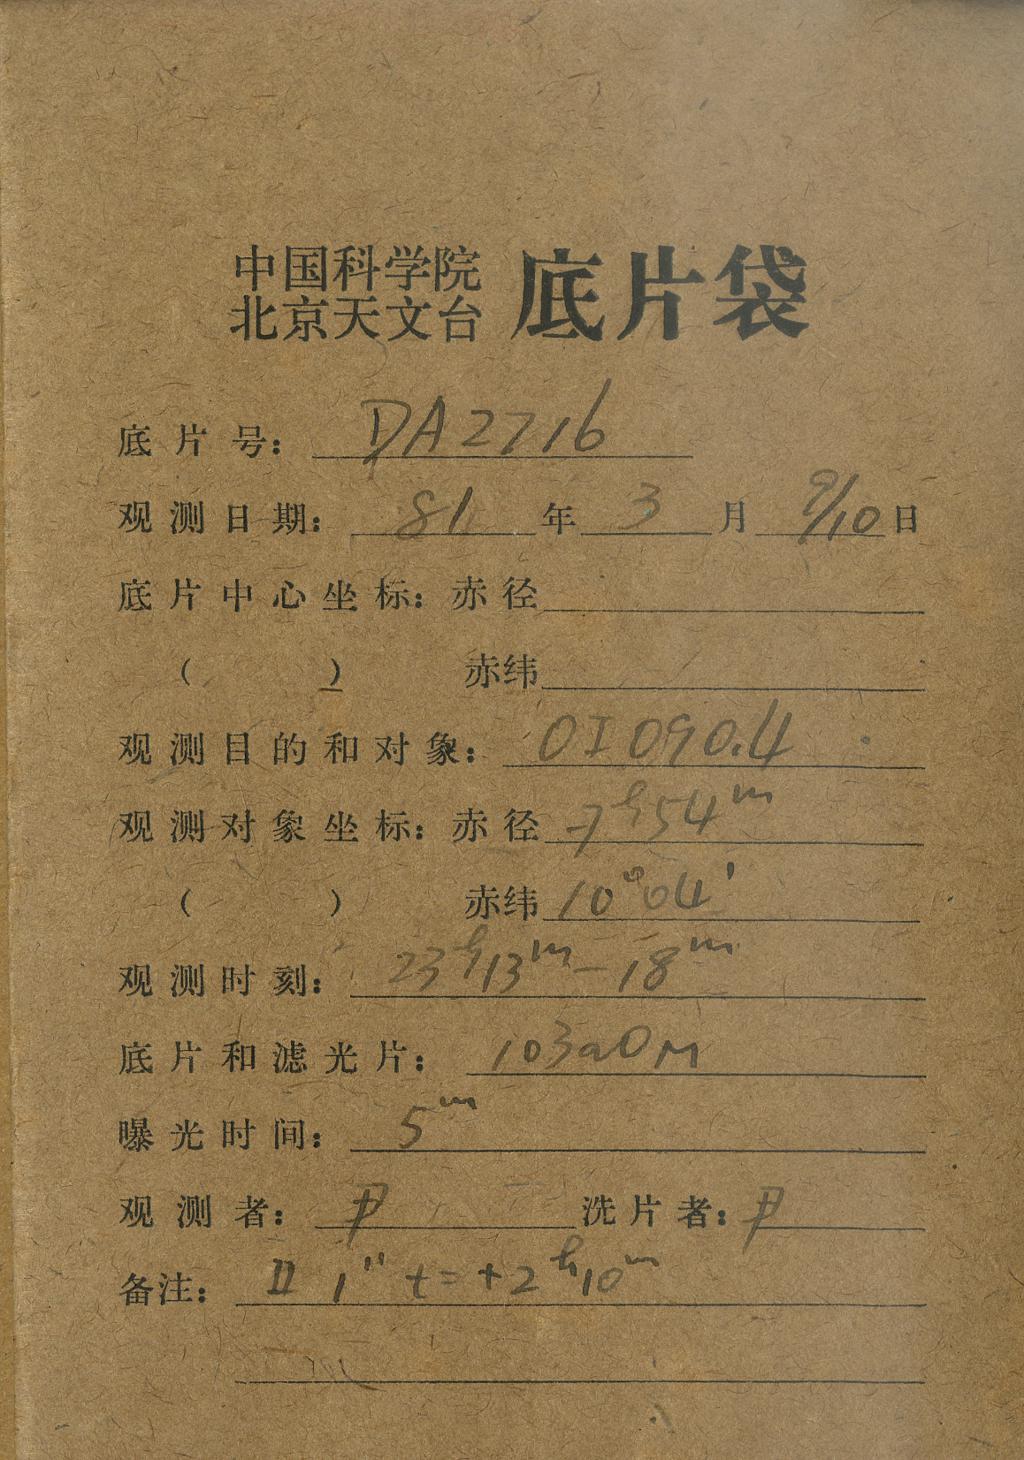 中国科学院
北京天文台 底片袋
底片号: DA2716
观测日期: 81 年 3 月 9/10 日
底片中心坐标: 赤径
( ) 赤纬
观测目的和对象: OI 090.4
观测对象坐标: 赤径 7h54m
( ) 赤纬 10°04'
观测时刻: 23h13m—18m
底片和滤光片: 103aO M
曝光时间: 5m
观测者: 洗片者:
备注: II 1" t=+2h10m